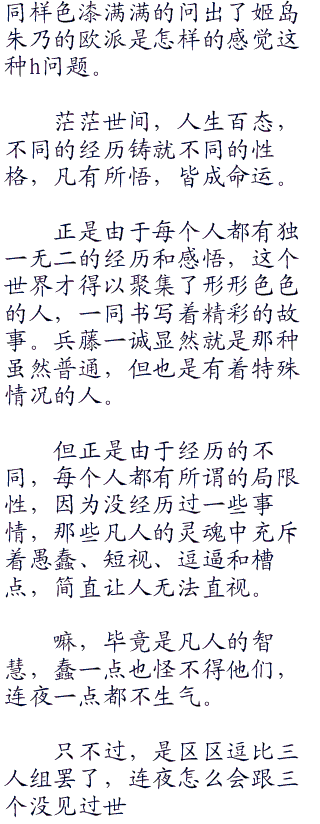 同样色漆满满的问出了姬岛
朱乃的欧派是怎样的感觉这
种h问题。
茫茫世间，人生百态，
不同的经历铸就不同的性
格，凡有所悟，皆成命运。
正是由于每个人都有独
一无二的经历和感悟，这个
世界才得以聚集了形形色色
的人，一同书写着精彩的故
事。兵藤一诚显然就是那种
虽然普通，但也是有着特殊
情况的人。
但正是由于经历的不
同，每个人都有所谓的局限
性，因为没经历过一些事
情，那些凡人的灵魂中充斥
着愚蠢、短视、逗逼和槽
点，简直让人无法直视。
嘛，毕竟是凡人的智
慧，蠢一点也怪不得他们，
连夜一点都不生气。
只不过，是区区逗比三
人组罢了，连夜怎么会跟三
个没见过世